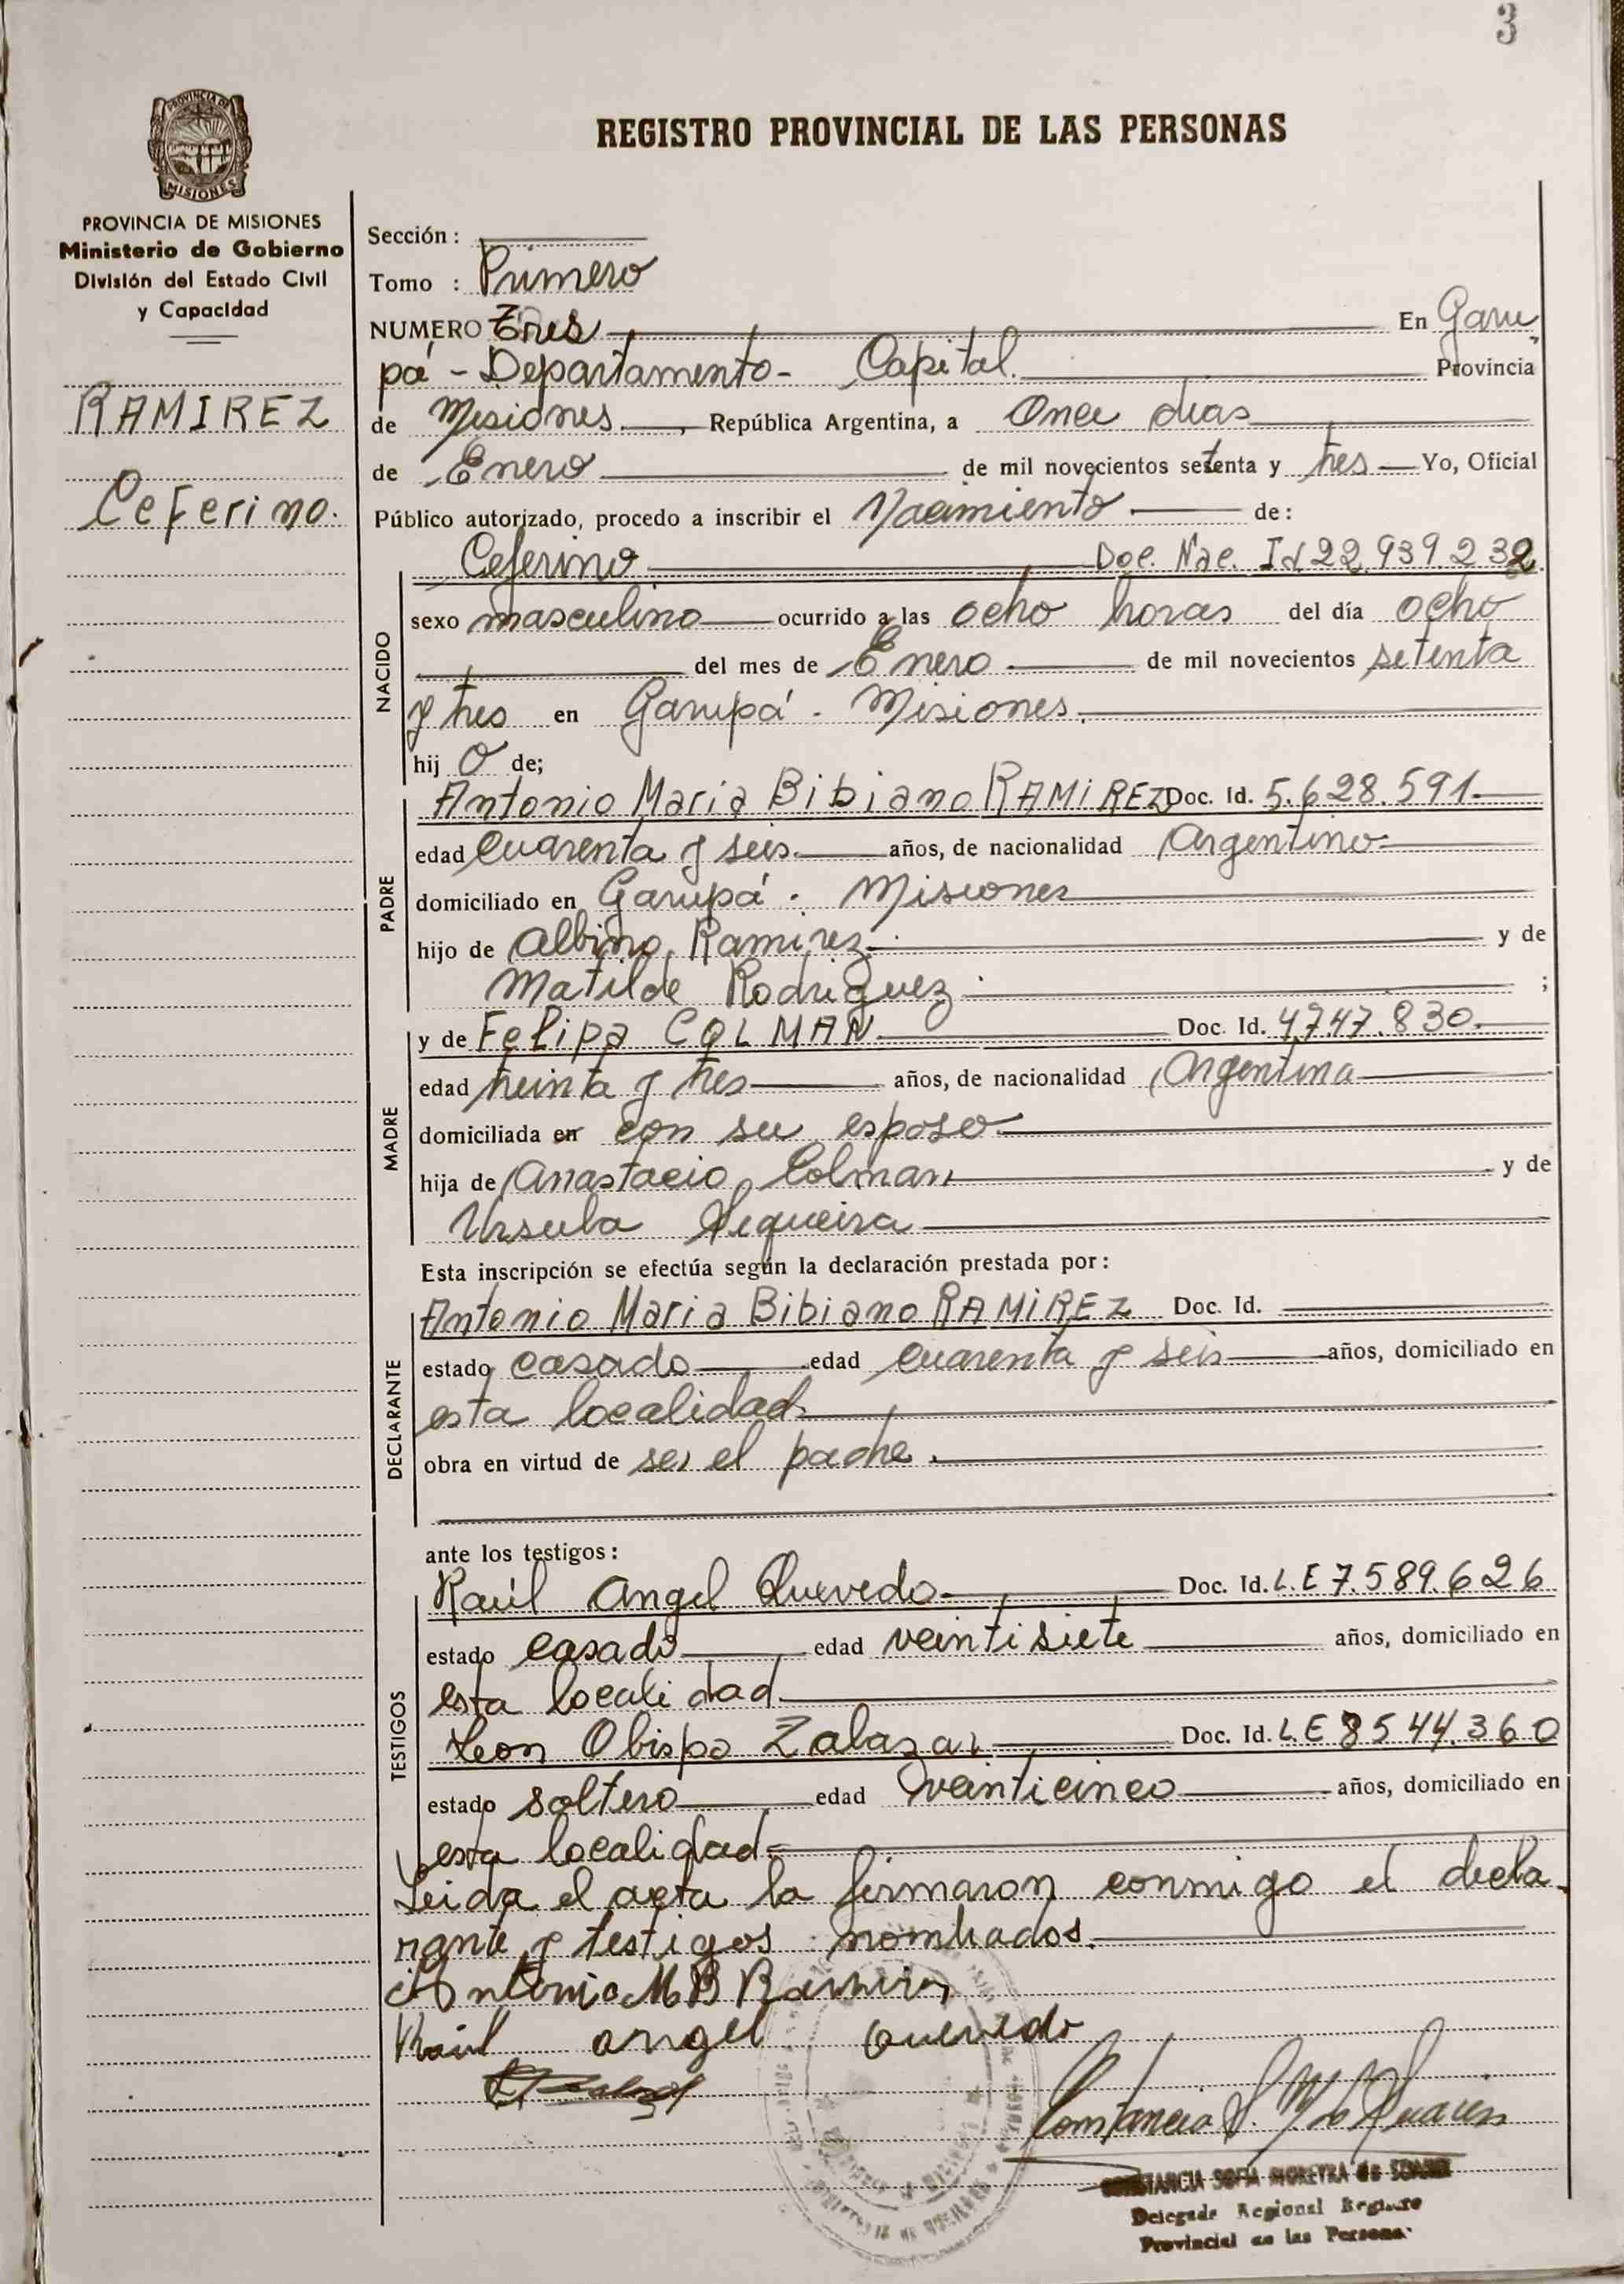 3
PROVINCIA DE
MISIONES
REGISTRO PROVINCIAL DE LAS PERSONAS
PROVINCIA DE MISIONES
Ministerio de Gobierno
División del Estado Civil
y Capacidad
RAMIREZ
Ceferino.
Sección :
Tomo : Primero
NUMERO Tres En Garu
pá - Departamento - Capital. Provincia
de Misiones. , República Argentina, a Once dias
de Enero de mil novecientos setenta y tres Yo, Oficial
Público autorizado, procedo a inscribir el Nacimiento de:
Ceferino Doc. Nac. Id 22.939.232
NACIDO
sexo masculino ocurrido a las ocho horas del día ocho
del mes de Enero de mil novecientos setenta
y tres en Garupá - Misiones.
hij o de;
PADRE
Antonio Maria Bibiano RAMIREZ Doc. Id. 5.628.591
edad cuarenta y seis años, de nacionalidad Argentino
domiciliado en Garupá - Misiones
hijo de Albino Ramirez y de
Matilde Rodriguez ;
MADRE
y de Felipa COLMAN Doc. Id. 4747.830.
edad treinta y tres años, de nacionalidad Argentina
domiciliada en con su esposo
hija de Anastacio Colman y de
Ursula Sequeira
Esta inscripción se efectúa según la declaración prestada por:
DECLARANTE
Antonio Maria Bibiano RAMIREZ Doc. Id.
estado casado edad cuarenta y seis años, domiciliado en
esta localidad.
obra en virtud de ser el padre.
ante los testigos:
TESTIGOS
Raúl Angel Quevedo Doc. Id. L.E 7.589.626
estado casado edad veintisiete años, domiciliado en
esta localidad
Leon Obispo Zalazar Doc. Id. L.E 8544.360
estado soltero edad veinticinco años, domiciliado en
esta localidad.
Leida el acta la firmaron conmigo el decla
rante y testigos nombrados.
Antonio M B Ramirez
Raúl angel Quevedo
Constancia S. M de Suarez
CONSTANCIA SOFIA MOREYRA de SUAREZ
Delegada Regional Registro
Provincial de las Personas